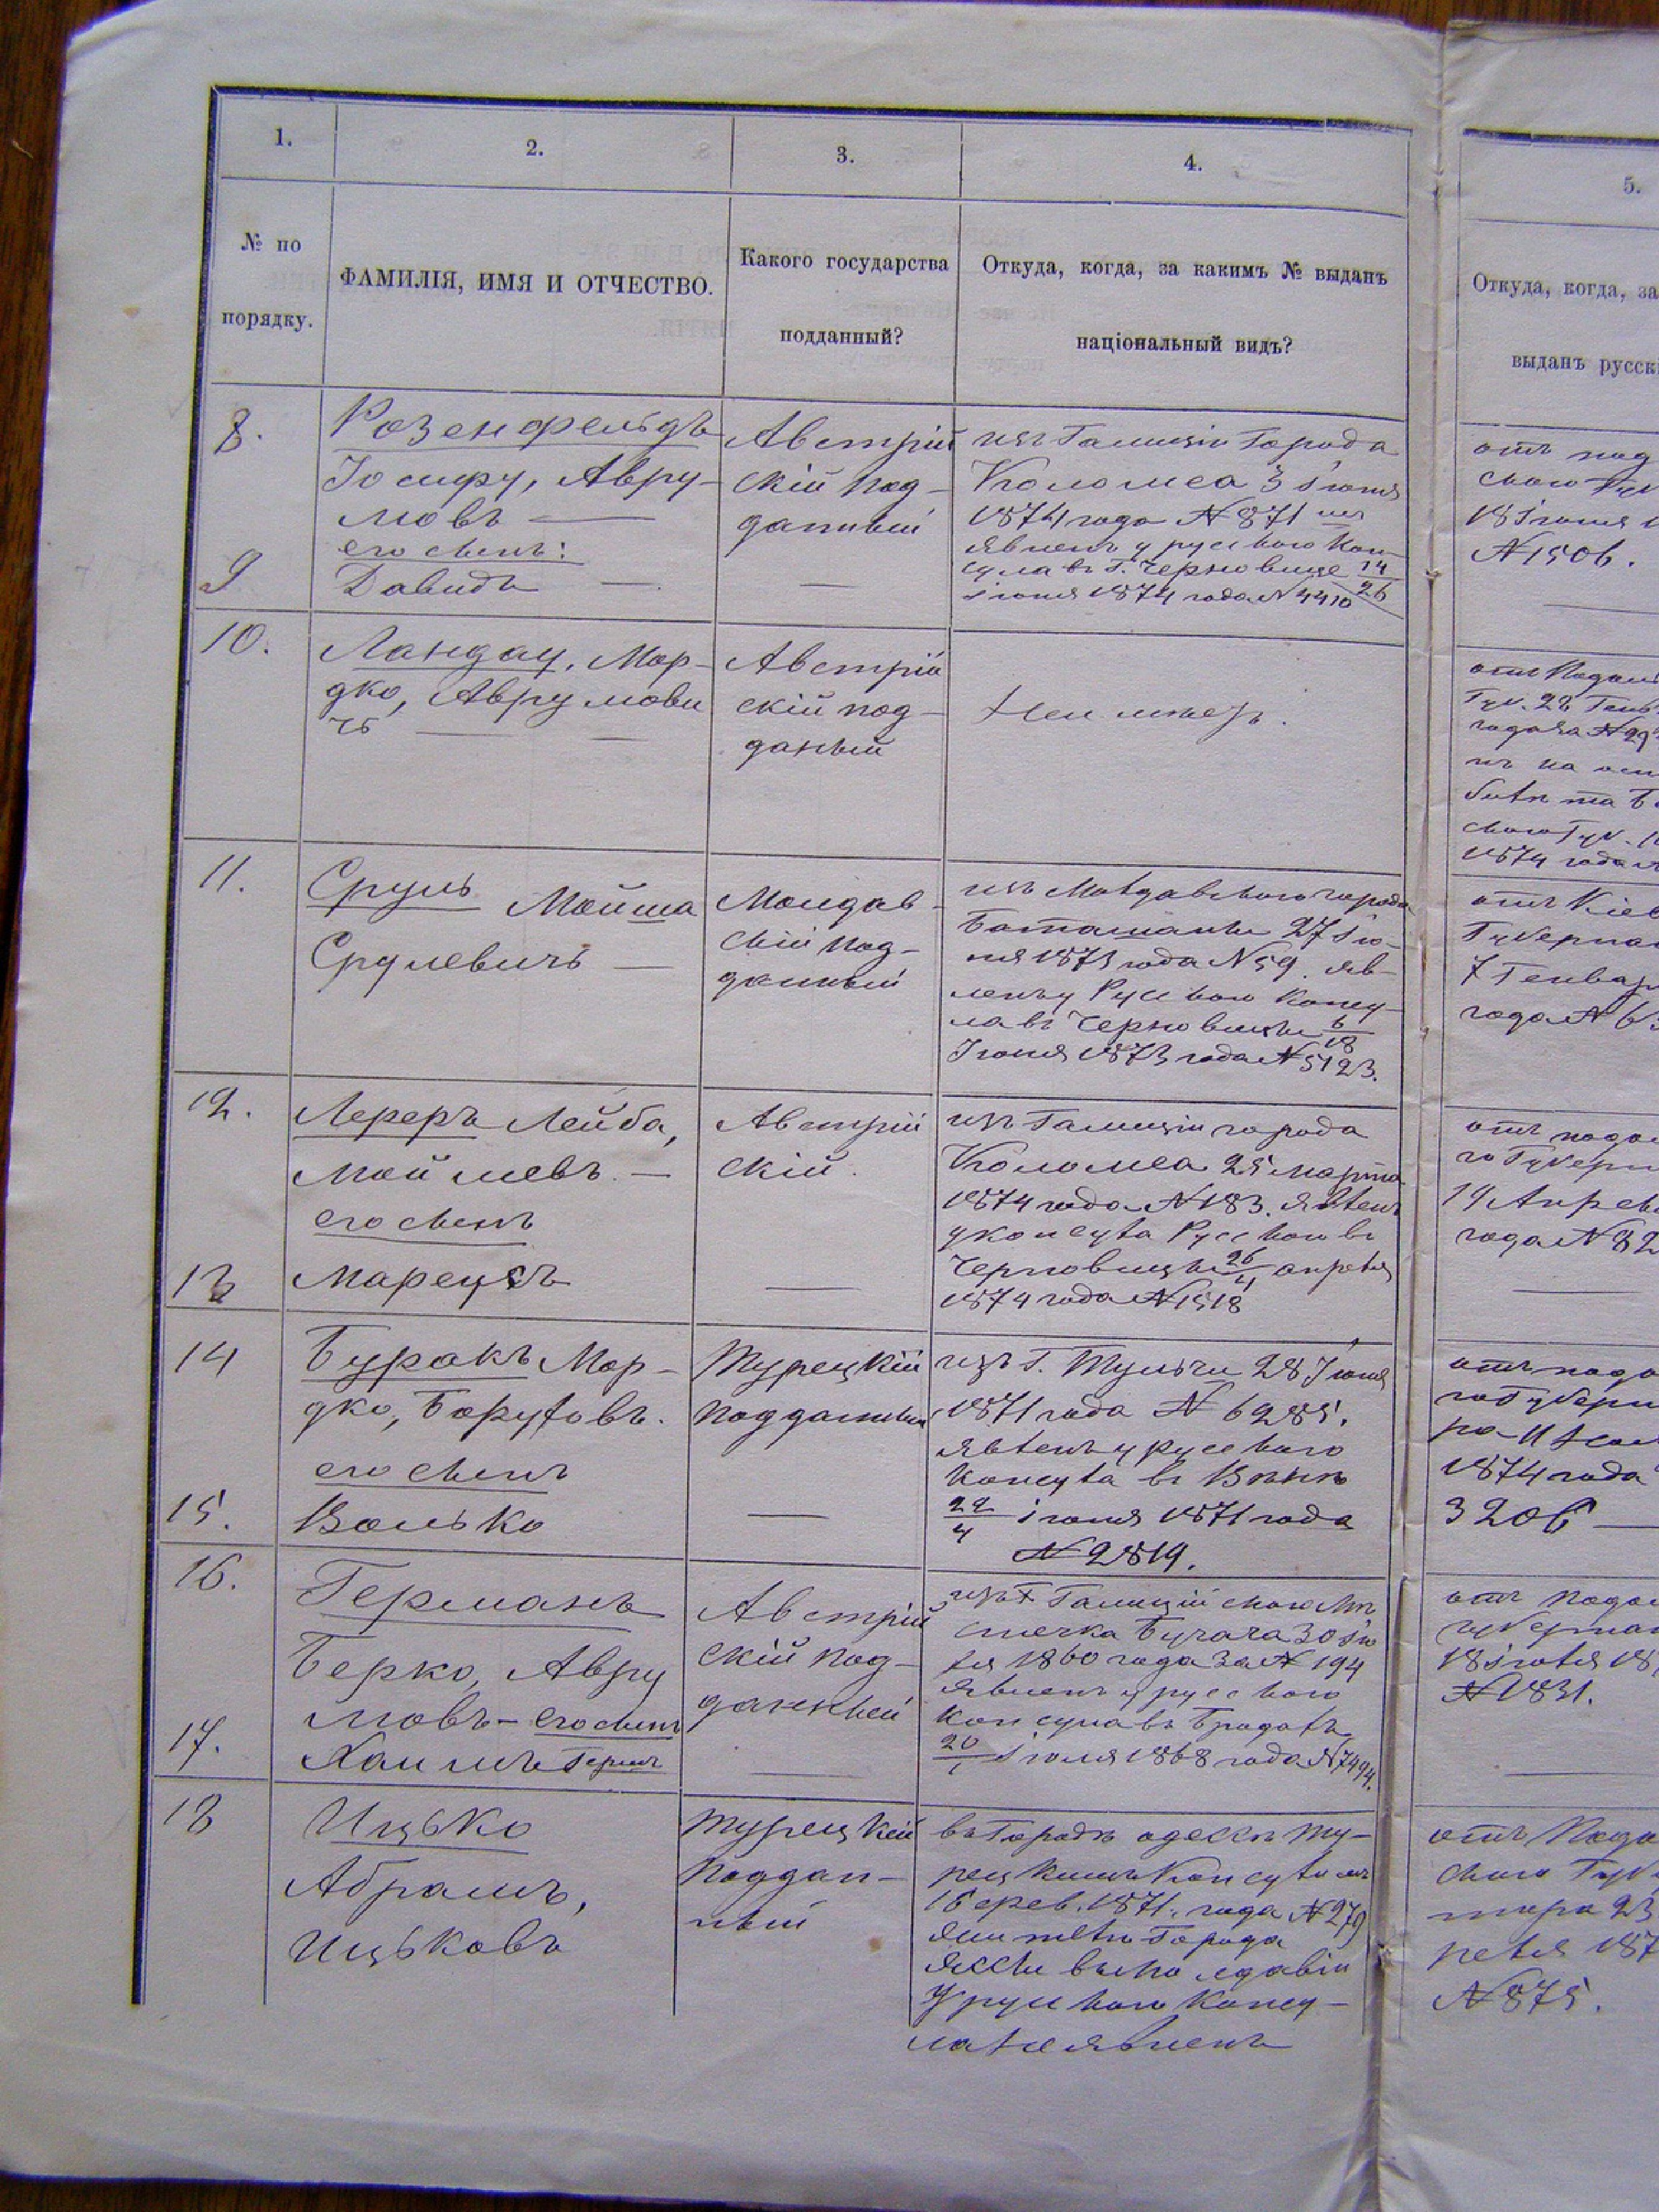 1.
2.
3.
4.
5.
№ по
порядку.
ФАМИЛІЯ, ИМЯ И ОТЧЕСТВО.
Какого государства
подданный?
Откуда, когда, за какимъ № выданъ
національный видъ?
Откуда, когда, за
выданъ русск
8.
Розенфельдъ
Іосифу, Авру-
мовъ —
его сынъ:
9
Давидъ —
Австрій
скій под-
данный
—
изъ Галиціи Города
Коломеа 3 іюня
1874 года № 871
явленъ у русскаго Кон-
сула въ Г. Черновице 14/26
іюня 1874 года № 4410
отъ под
N 1506.
10.
Ландау, Мор-
дко, Аврумови
чъ — —
Австрій
скій под-
даный
Неимѣетъ.
1874 года
11.
Сруль Мойша
Срулевичъ —
Молдав-
скій под-
данный
изъ Молдавскаго города
Ботошаны 27 Ію-
ня 1873 года N 59. яв-
ленъ у Русскаго Консу-
ла въ Черновицы 6/18
Іюня 1873 года № 5123.
отъ Кіев
Губерна
7 Генвар
года № 63
12.
Лереръ Лейба,
Мойшевъ —
его сынъ
13
Марецъ
Австрій
скій.
—
изъ Галиціи города
Коломеа 25 марта
1874 года № 183. явленъ
у консула Русскаго въ
Черновицы апреля
1874 года № 1518
отъ подо
го Губерн
года № 82
14
Буракъ Мор-
дко, Боруховъ.
его сынъ
15.
Волько
Турецкій
подданный
—
изъ Г. Тульчи 28 Іюня
1871 года № 6285.
явленъ у русскаго
консула въ
22/4 іюня 1871 года
№ 2819.
отъ подо
го Губерн
1874 года
3206 —
16.
Германъ
Берко, Авру
мовъ - его сынъ
17.
Хаимъ Герш
Австрій
скій под-
данный
—
изъ Галиційскаго Мѣ
стечка Бучача 30 Ію
ля 1860 года за № 194
явленъ у русскаго
консула въ Бродахъ
іюля 1868 года № 7494.
отъ подо
губерна
18 іюля 18
№ 1831.
18
Ицько
Абрамъ,
Ицьковъ
Турецкій
поддан-
ный
въ Городѣ одессѣ Ту-
рецкимъ Консуломъ
16 фев. 1871. года № 279
Города
Яссы въ Молдавіи
У русскаго Консу-
ла не явленъ
отъ Подо
скаго Губ
N 875.